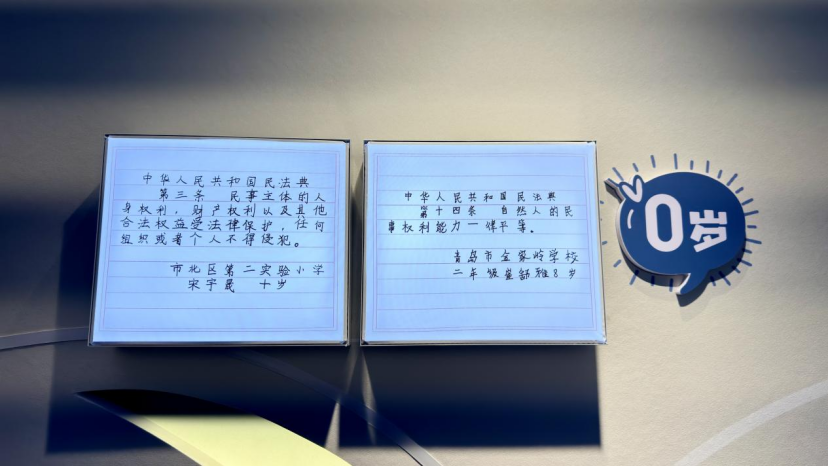 中华人民共和国民法典
第三条 民事主体的人
身权利，财产权利以及其他
合法权益受法律保护，任何
组织或者个人不得侵犯。
市北区第二实验小学
宋宇晟 十岁
中华人民共和国民法典
第十四条 自然人的民
事权利能力一律平等。
青岛市金家岭学校
二年级 舒雅8岁
0岁